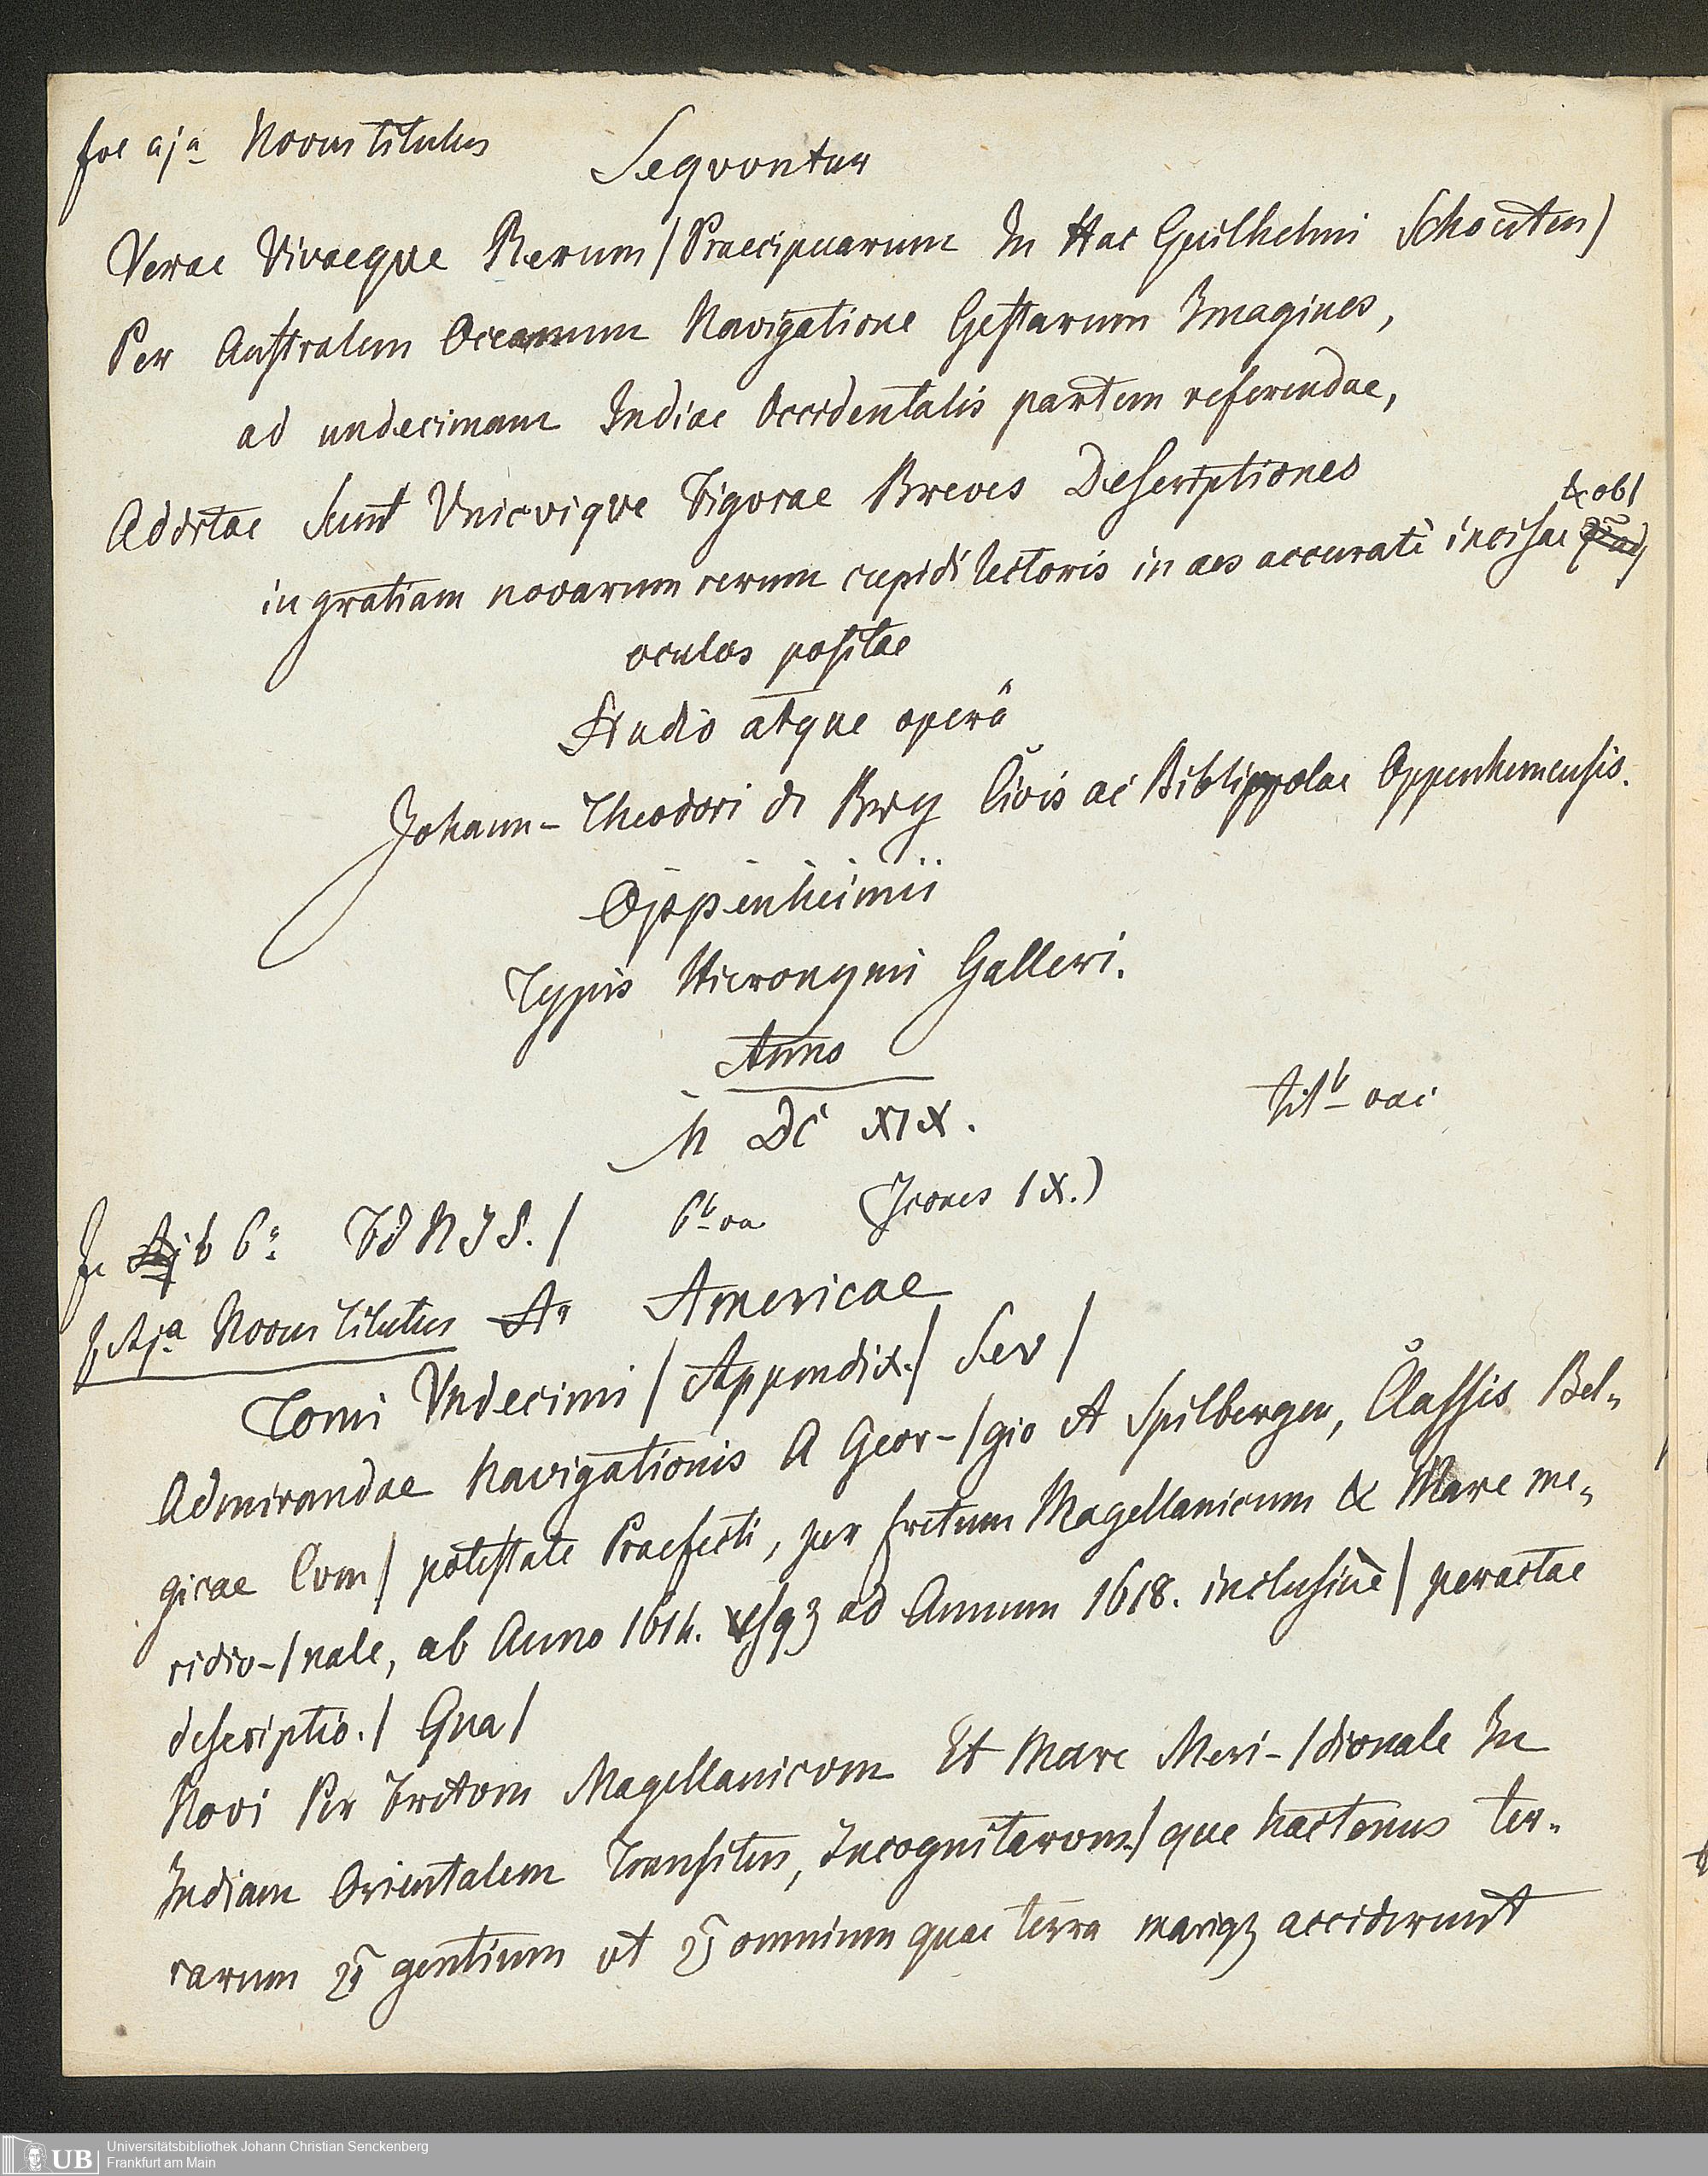 fol aja Novus titulus Seqvvntur
Verae Vivaeqve Rerum / Praecipuarum In Hac Guilhelmi Schouten /
Per Australem Oceanum Navigatione Gestarum Imagines,
ad undecimam Indiae Occidentalis partem referendae,
Additae Sunt Vnicviqve Figvrae Breves Descriptiones
& ob /
in gratiam novarum rerum cupidi lectoris in aes accuratè incisae
oculos positae
Studio atque operâ
Johann-Theodori de Bry Civis ac Bibliopolae Oppenhemensis.
Oppenheimii
Typis Hieronymi Galleri.
Anno
M DC XIX.
tit b vac
b 6a FINIS. / 6b va (Icones IX.)
f. Aja Novus titulus Americae
Tomi Vndecimi / Appendix. / Sev /
Admirandae Navigationis A Geor-/gio A Spilbergen, Classis Bel-
gicae Cvm / potestate Praefecti, per fretum Magellanicum & Mare me-
ridio-/nale, ab Anno 1614. vsqz ad Annum 1618. inclusiuè / peractae
descriptio. / Qua /
Novi Per Fretvm Magellanicvm Et Mare Meri-/dionale In
Indiam Orientalem Transitus, Incognitarvm. / que hactenus ter-
rarum & gentium vt & omnium quae terra mariqz acciderunt
UB Universitätsbibliothek Johann Christian Senckenberg
Frankfurt am Main